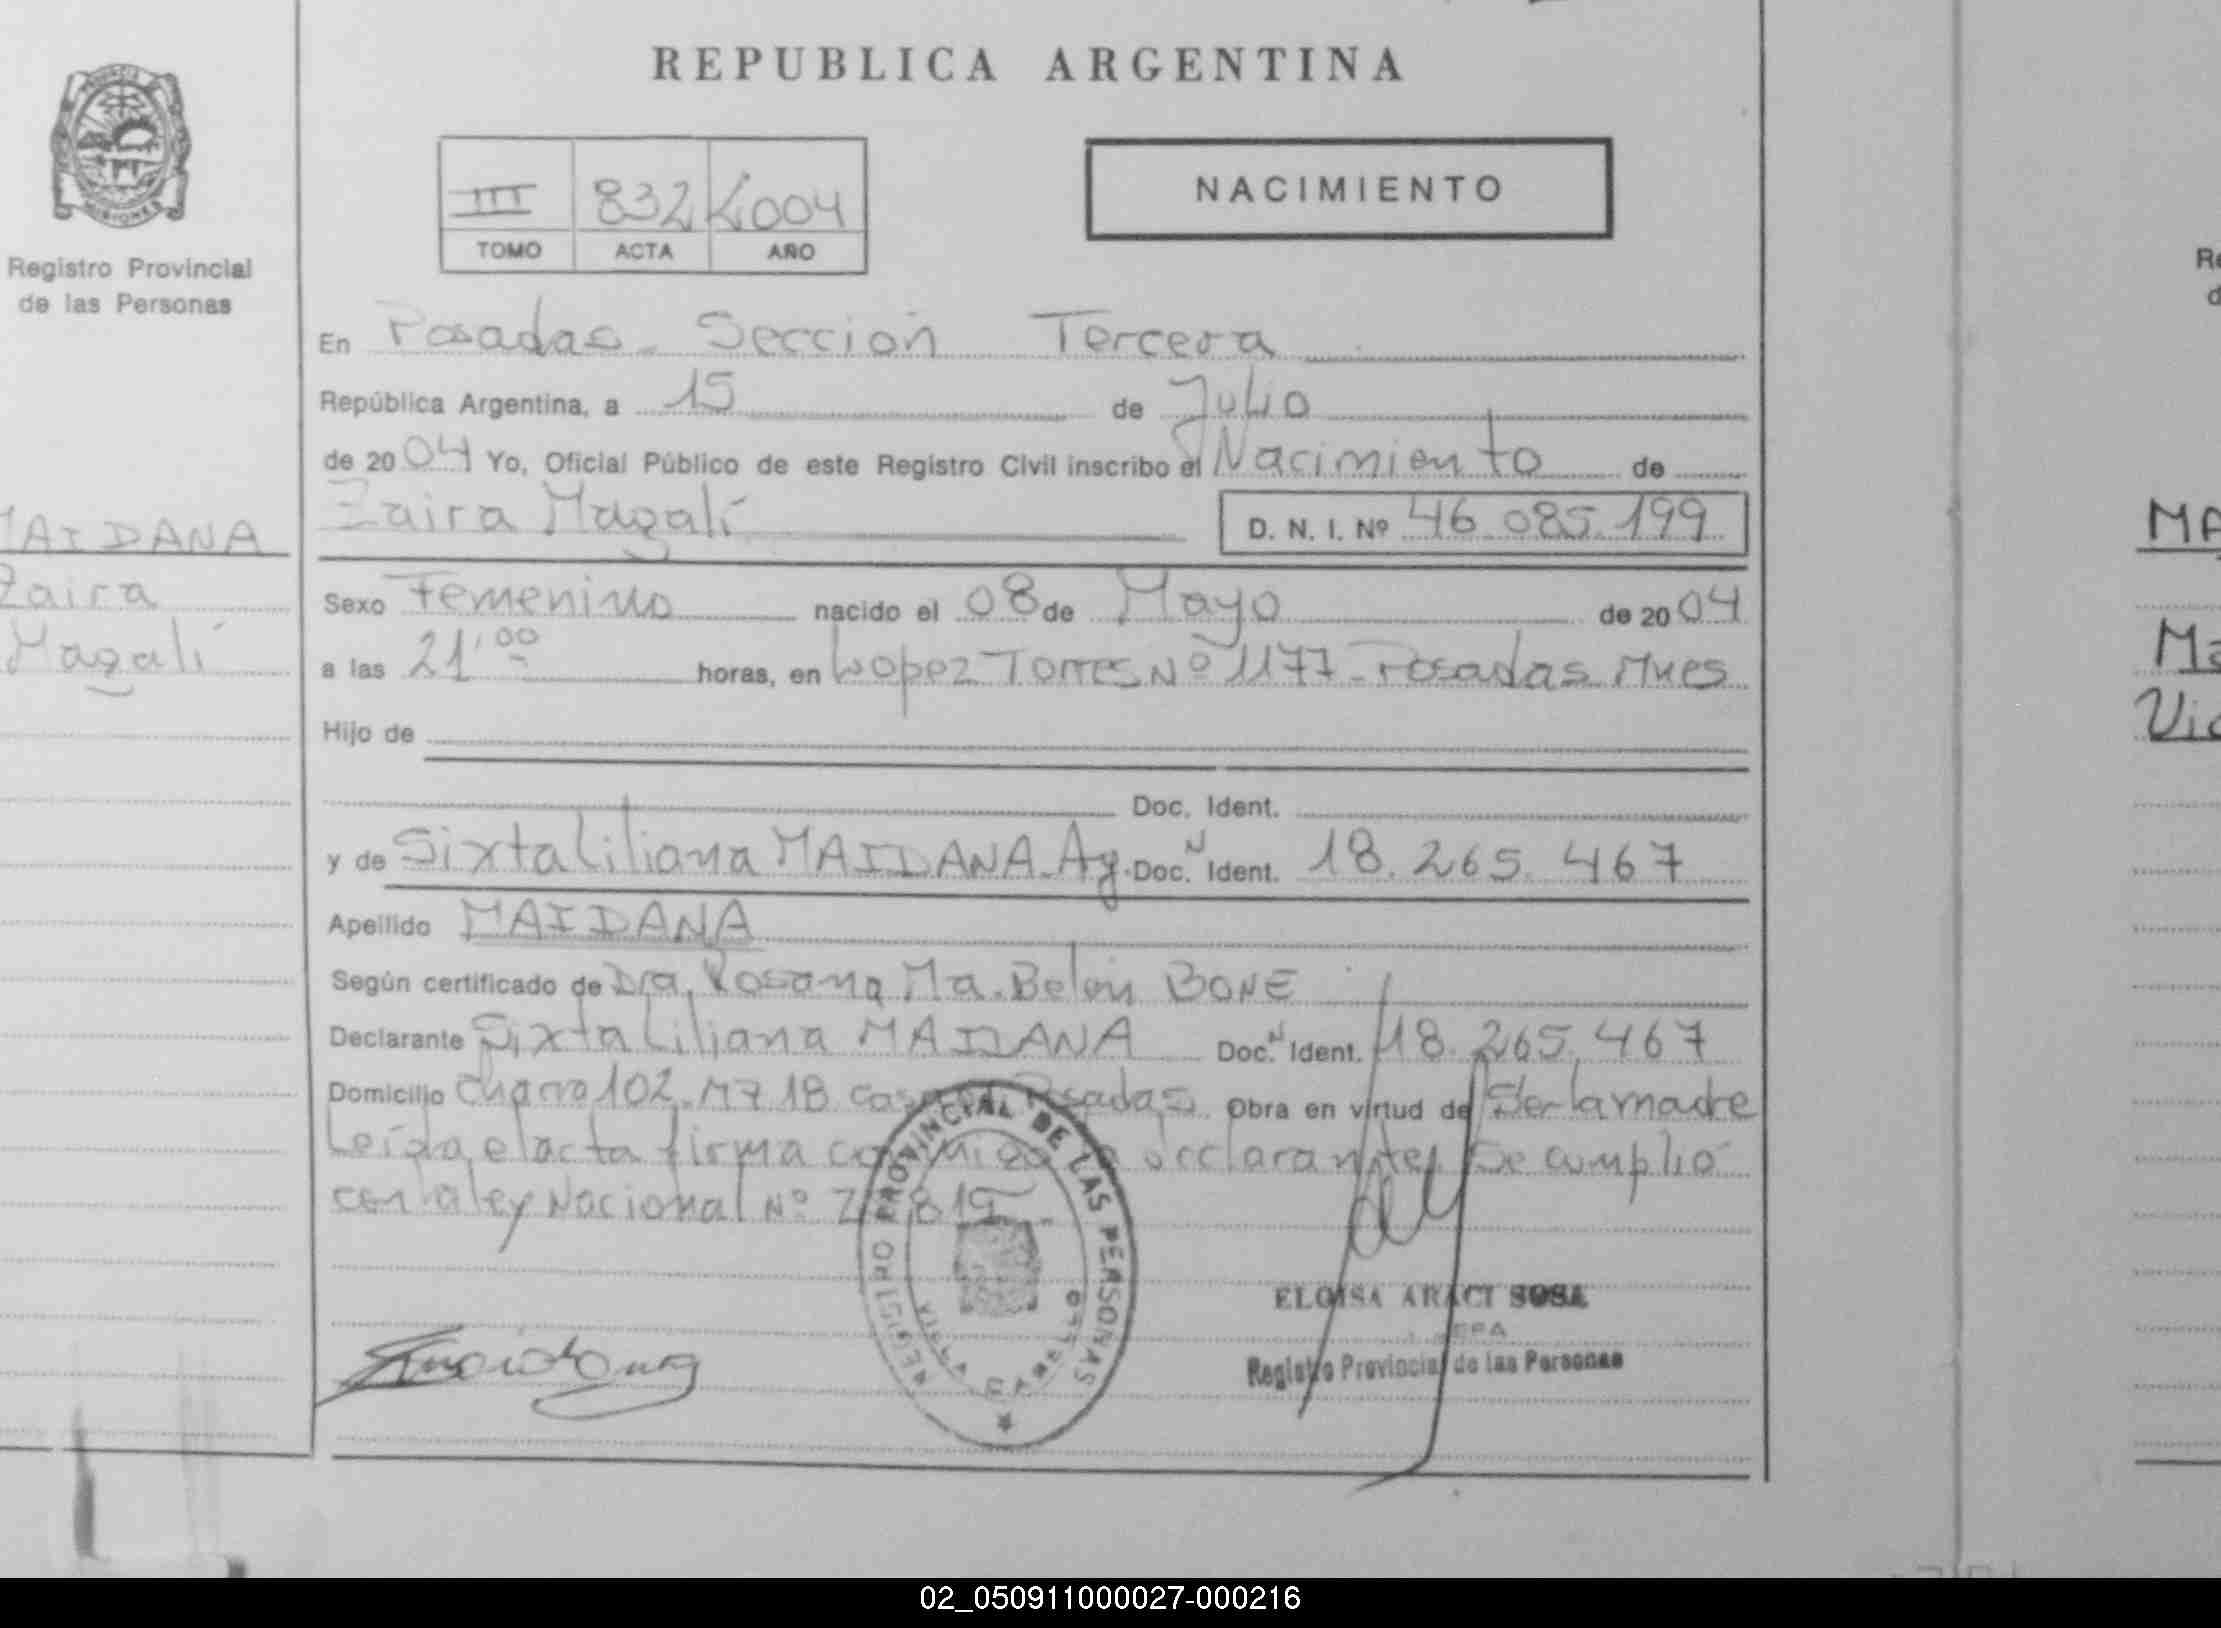 REPUBLICA ARGENTINA
MISIONES
Registro Provincial
de las Personas
MAIDANA
Zaira
Magalí
III 832 2004
TOMO ACTA AÑO
NACIMIENTO
En Posadas - Sección Tercera
República Argentina, a 15 de Julio
de 2004 Yo, Oficial Público de este Registro Civil inscribo el Nacimiento de
Zaira Magalí D. N. I. Nº 46.085.199
Sexo Femenino nacido el 08 de Mayo de 2004
a las 21,00 horas, en Lopez Torres Nº 1177 - Posadas Mnes
Hijo de
Doc. Ident.
y de Sixta Liliana MAIDANA. Ag. Doc. N Ident. 18.265.467
Apellido MAIDANA
Según certificado de Dra. Rosana Ma. Belén BONE
Declarante Sixta Liliana MAIDANA Doc. N Ident. 18.265.467
Domicilio Chacra 102. Mz 18 casa Posadas. Obra en virtud de Ser la madre
Leída el acta firma conmigo la declarante. Se cumplió
con la ley Nacional Nº
REGISTRO PROVINCIAL DE LAS PERSONAS
POSADAS
ELOISA ARACI SOSA
Registro Provincial de las Personas
Re
d
MA
Ma
Vic
02_050911000027-000216